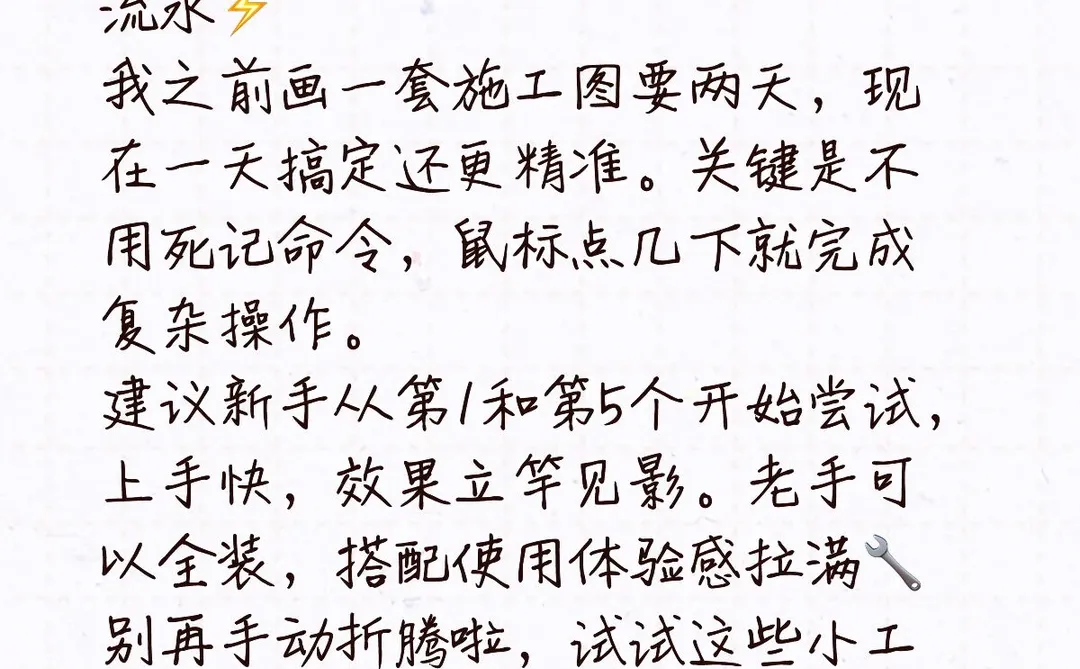 流水⚡
我之前画一套施工图要两天，现
在一天搞定还更精准。关键是不
用死记命令，鼠标点几下就完成
复杂操作。
建议新手从第1和第5个开始尝试，
上手快，效果立竿见影。老手可
以全装，搭配使用体验感拉满🔧
别再手动折腾啦，试试这些小工